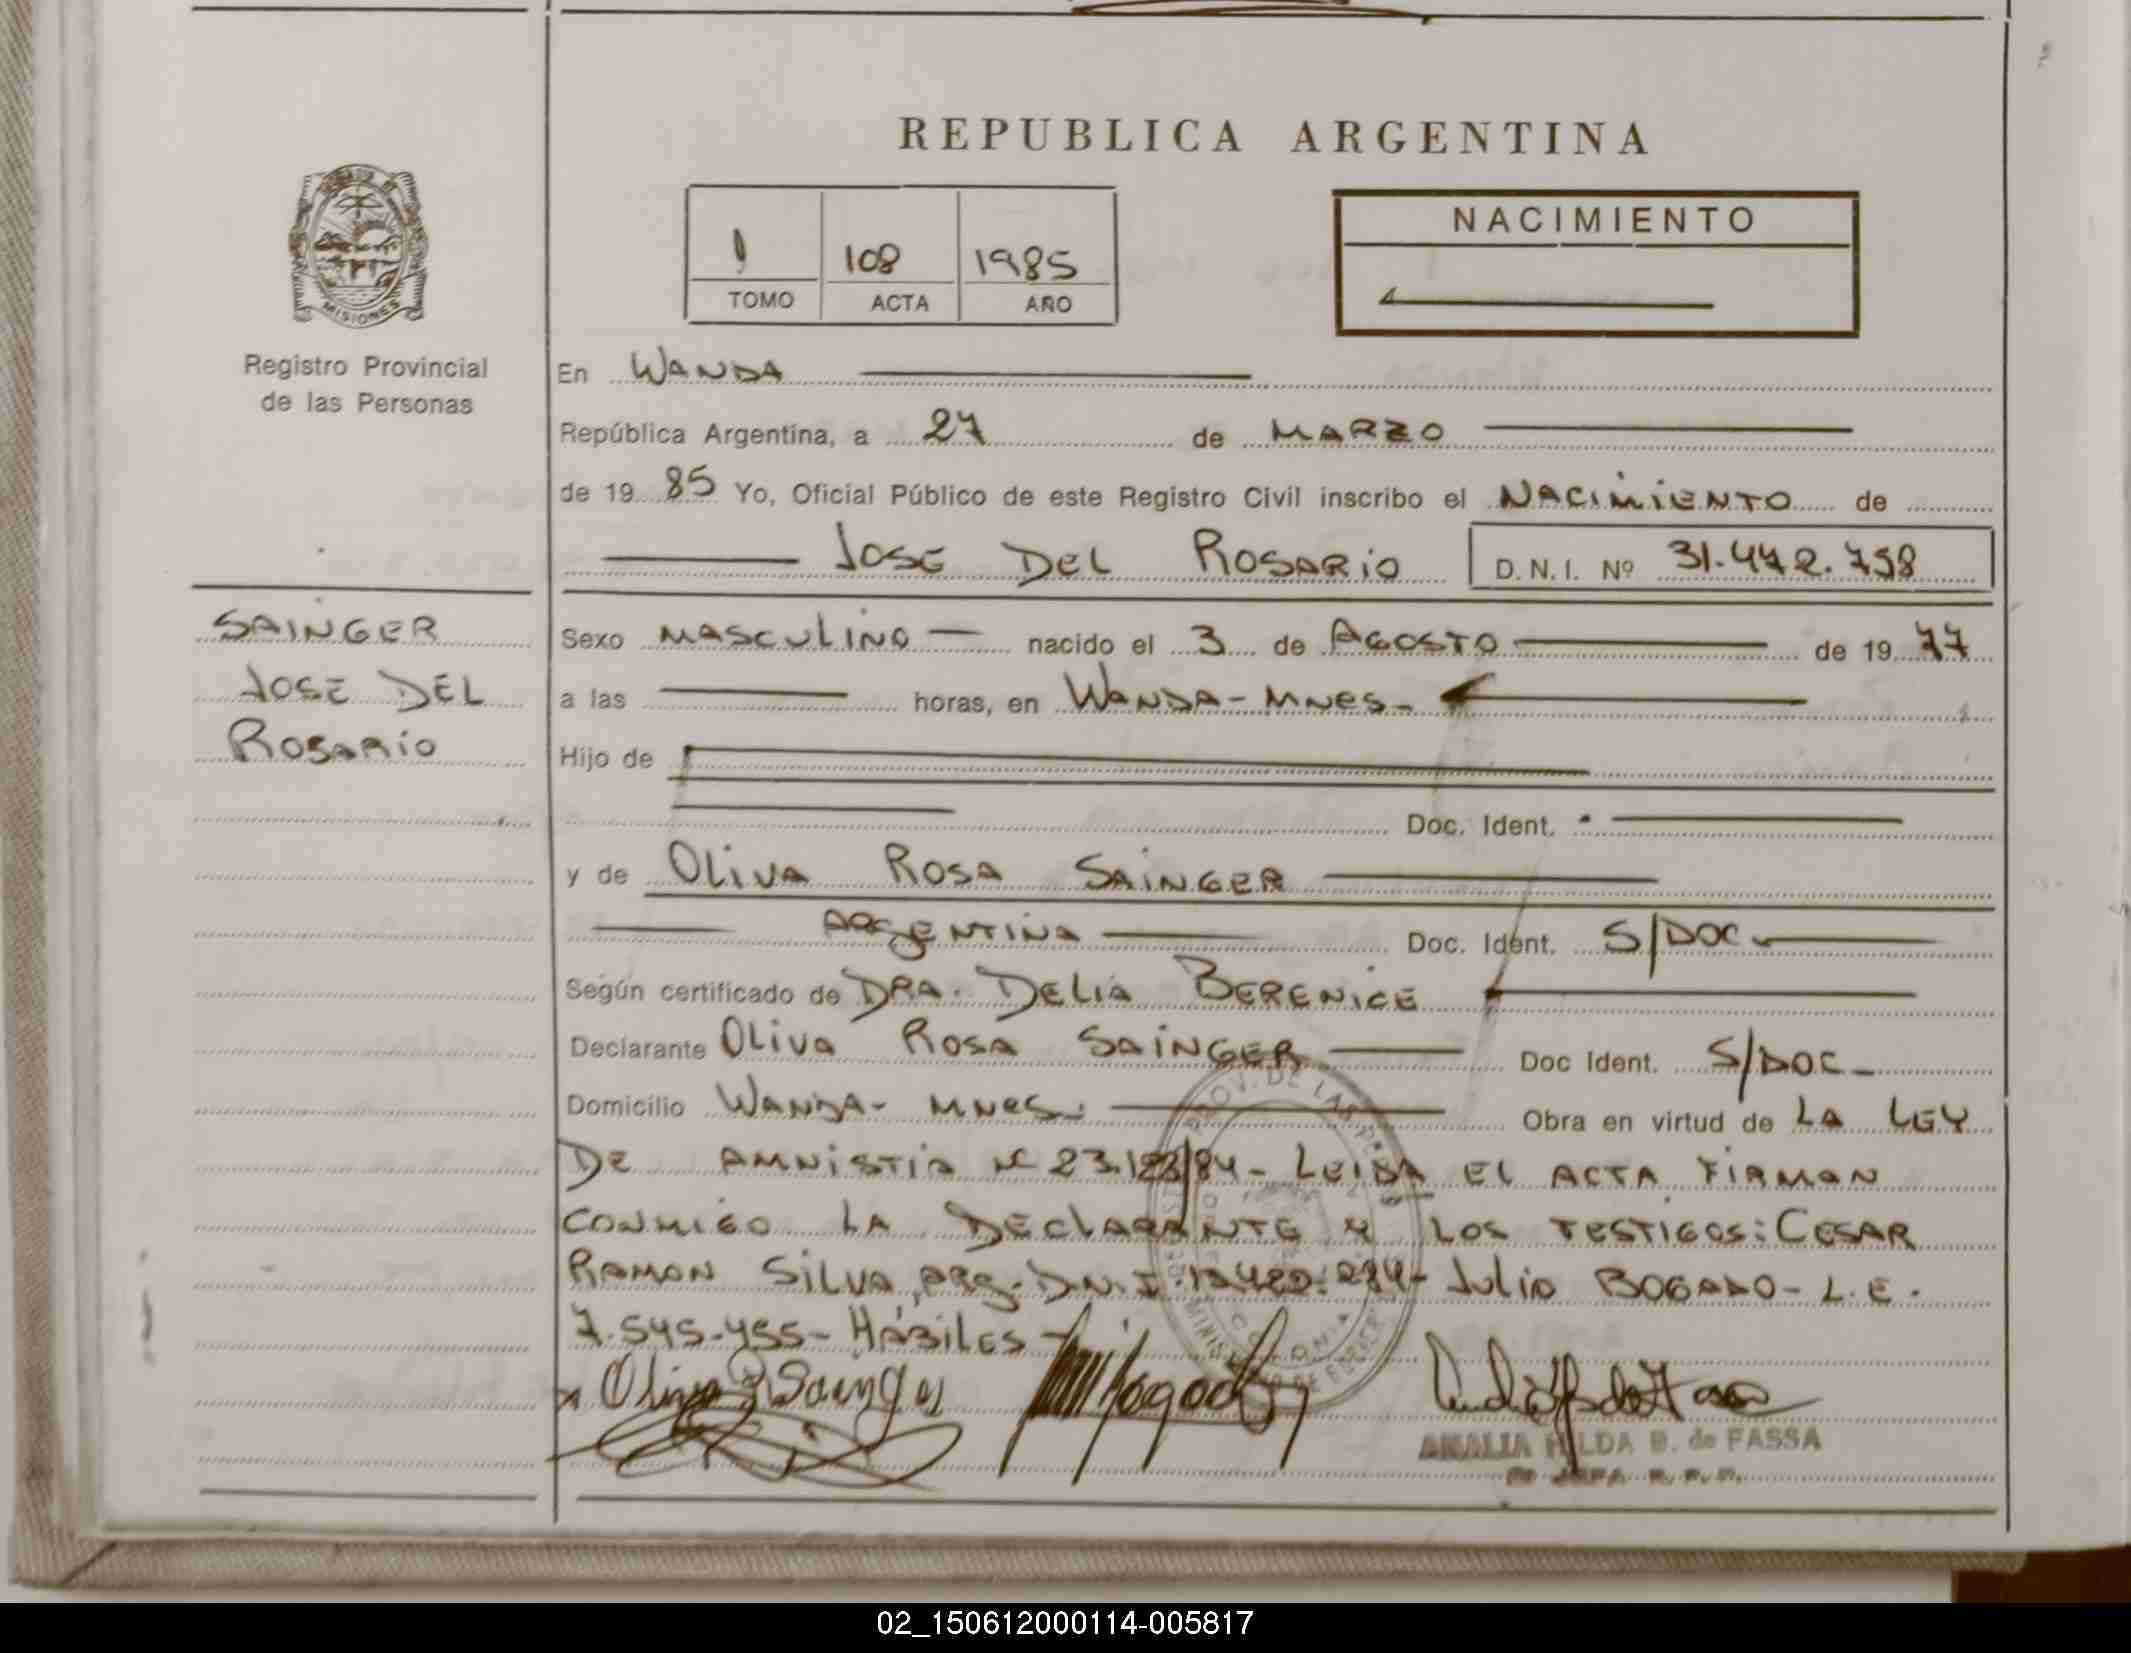 REPUBLICA ARGENTINA
MISIONES
Registro Provincial
de las Personas
1 108 1985
TOMO ACTA AÑO
NACIMIENTO
En WANDA
República Argentina, a 27 de MARZO
de 19 85 Yo, Oficial Público de este Registro Civil inscribo el NACIMIENTO de
JOSE DEL ROSARIO D.N.I. Nº 31.472.758
SAINGER
JOSE DEL
ROSARIO
Sexo MASCULINO nacido el 3 de AGOSTO de 19 77
a las horas, en WANDA-MNES-
Hijo de
Doc. Ident.
y de OLIVA ROSA SAINGER
ARGENTINA Doc. Ident. S/DOC
Según certificado de DRA. DELIA BERENICE
Declarante OLIVA ROSA SAINGER Doc Ident. S/DOC-
Domicilio WANDA- MNES. Obra en virtud de LA LEY
DE AMNISTIA Nº 23.128/84- LEIDA EL ACTA FIRMAN
CONMIGO LA DECLARANTE Y LOS TESTIGOS: CESAR
RAMON SILVA, ARG. D.N.I. JULIO BOGADO- L.E.
7.545.455- HÁBILES-
Oliva R Saenger
AMALIA HILDA B. de FASSA
02_150612000114-005817